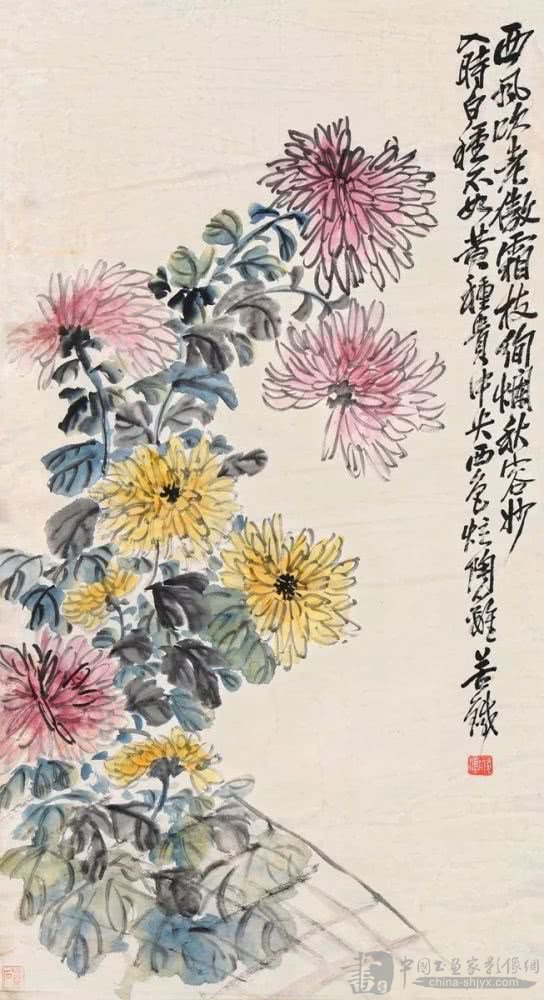 西風吹老傲霜枝絢爛秋容妙
入時白種不如黃種貴中央色陶籬 苦鐵
中國书畫家影像網
china-shjyx.com